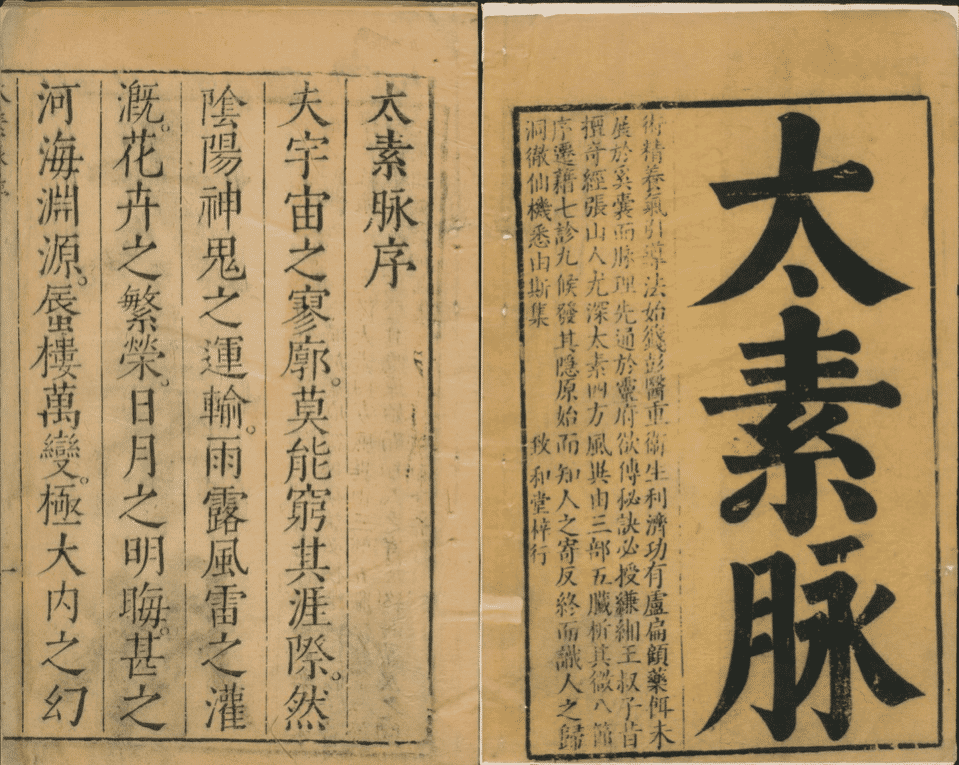 太素脉
術精養氣引導法始籛彭醫重衛生利濟功有盧扁藥餌未
展於奚囊而脉理先通於靈府欲傳秘訣必授縑緗王叔子昔
擅奇經張山人尤深太素四方風異由三部五臟析其微八節
序遷藉七診九候發其隐原始而知人之寄反終而識人之歸
洞徹仙機悉由斯集 致和堂梓行
太素脉序
夫宇宙之寥廓。莫能窮其涯際。然
陰陽神鬼之運輸。雨露風雷之灌
溉。花卉之繁榮。日月之明晦。甚之
河海淵源。蜃樓萬變。極大内之幻